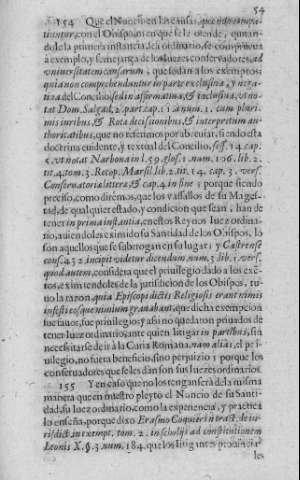 54
154 Que el Nuncio en las causas, que no
, con el Obispo, ni en que se le ofende, quitan-
dole la primera instancia del ordinario, se comprueua
à exemplo, y semejança de los Iuezes conseruadores, ad
vniuersitatem causarum, que se dan à los exemptos,
quia non comprehenduntur in parte exclusiua, y negatiua
del Concilio, sed in affirmatiua, & inclusiua, vt no-
tat Dom. Salgad. 2. part. cap. 11. anum. 1. cum pluri-
mis iuribus, & Rota decissionibus, & interpretum au-
thoritatibus, que no referimos por abreuiar, siendo esta
doctrina euidente, y textual del Concilio, sess. 14. cap.
5. vt notat Narbona in l. 59. glos. 1. num. 106. lib. 2.
tit. 4. tom. 3. Recop. Marsil. lib. 2. tit. 14. cap. 3. vers.
Conseruatoria littera, & cap. 4. in fine; porque siendo
preciso, como diremos, que los vassallos de su Mages-
tad, de qualquier estado, y condicion que sean, han de
tener in prima instantia, en estos Reynos Iuez ordina-
rio, auiendoles eximido su Santidad de los Obispos, lo
son aquellos que se subrogan en su lugar; y Castrense
cons. 452. incipit videtur dicendum, num. 3. lib. 1. vers.
quod autem, considera que el priuilegio dado a los exê-
tos, eximiendoles de la jurisdicion de los Obispos, tu-
uo la razon, quia Episcopi dictis Religiosis erant nimis
infesti eosque nimium grauabant, que dicha exempcion
fue fauor, fue priuilegio; y assi no quedaron priuados de
tener Iuez ordinario, ante quien litigar in partibus, sin
necessitarse de ir à la Curia Romana, nam alias, el pri-
uilegio, no fuera beneficio, sino perjuizio; y porque los
conseruadores que se les dan son sus Iuezes ordinarios.
155 Y en caso que no los tengan serà de la misma
manera que en nuestro pleyto el Nuncio de su Santi-
dad, su Iuez ordinario, como la experiencia, y practica
lo enseña, porque dixo Erasmo Coquier in tract. de iu-
risdict. in exempt. tom. 2. in scholijs ad constitutionem
Leonis X. §. 3. num. 184. que los litigantes prouincia-
les